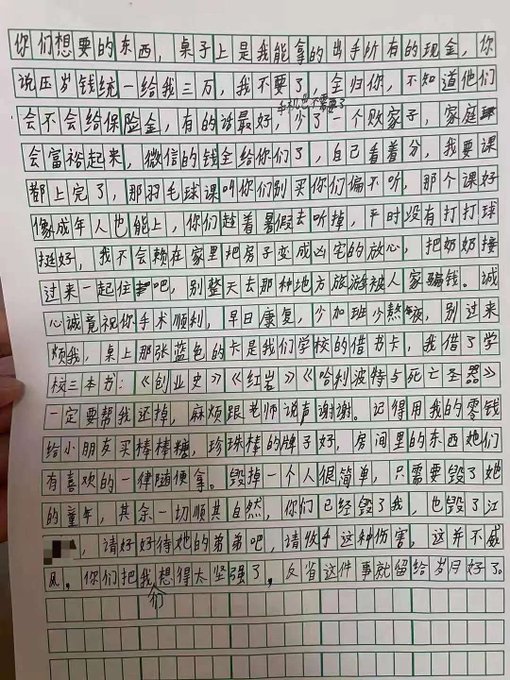 你们想要的东西，桌子上是我能拿的出手所有的现金，你
说压岁钱统一给我三万，我不要了，全归你，不知道他们
手机也不需要了
会不会给保险金，有的话最好，少了一个败家子，家庭
会富裕起来，微信的钱全给你们了，自己看着分，我要课
都上完了，那羽毛球课叫你们别买你们偏不听，那个课好
像成年人也能上，你们趁着暑假去听掉，平时没有打打球
挺好，我不会赖在家里把房子变成凶宅的放心，把奶奶接
过来一起住吧，别整天去那种地方旅游被人家骗钱。诚
心诚竟祝你手术顺利，早日康复，少加班少熬夜，别过来
烦我，桌上那张蓝色的卡是我们学校的借书卡，我借了学
校三本书：《创业史》《红岩》《哈利波特与死亡圣器》
一定要帮我还掉，麻烦跟老师说声谢谢。记得用我的零钱
给小朋友买棒棒糖，珍珠棒的牌子好，房间里的东西她们
有喜欢的一律随便拿。毁掉一个人很简单，只需要毁了她
的童年，其余一切顺其自然，你们已经毁了我，也毁了江
，请好好待她的弟弟吧，请收手这种伤害，这并不威
风。你们把我们想得太坚强了，反省这件事就留给岁月好了。